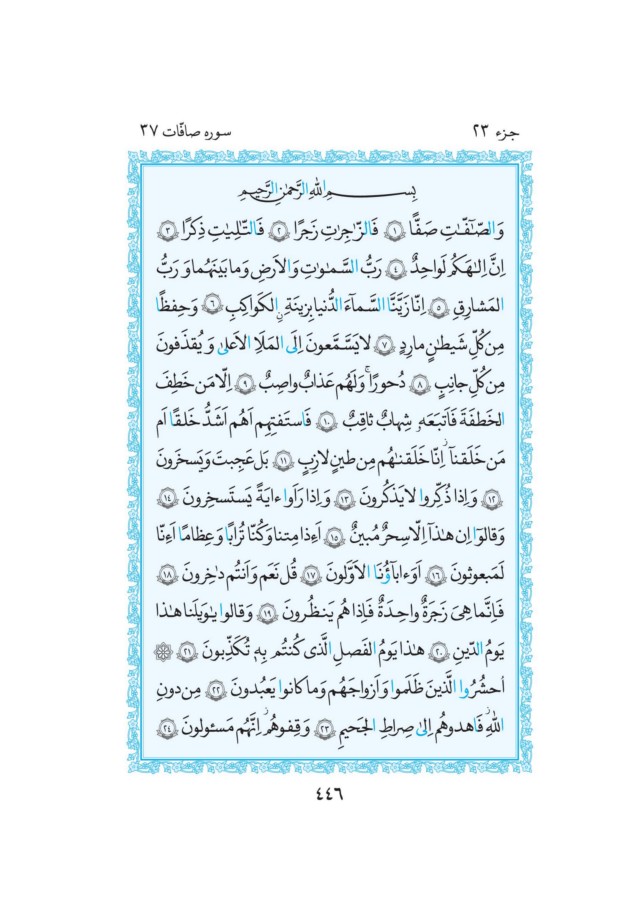 جزء ۲۳
سوره صافّات ۳۷
بِسمِ اللهِ الرَّحمٰنِ الرَّحيمِ
وَالصّٰٓفّٰتِ صَفًّا ﴿۱﴾ فَالزّٰجِرٰتِ زَجرًا ﴿۲﴾ فَالتّٰلِيٰتِ ذِكرًا ﴿۳﴾
اِنَّ اِلٰهَكُم لَواحِدٌ ﴿۴﴾ رَبُّ السَّمٰوٰتِ وَالاَرضِ وَما بَينَهُما وَ رَبُّ
المَشارِقِ ﴿۵﴾ اِنّا زَيَّنَّا السَّماءَ الدُّنيا بِزينَةٍ الكَواكِبِ ﴿۶﴾ وَ حِفظًا
مِن كُلِّ شَيطٰنٍ مارِدٍ ﴿۷﴾ لا يَسَّمَّعونَ اِلَى المَلَاِ الاَعلىٰ وَ يُقذَفونَ
مِن كُلِّ جانِبٍ ﴿۸﴾ دُحورًا ۖ وَلَهُم عَذابٌ واصِبٌ ﴿۹﴾ اِلّا مَن خَطِفَ
الخَطفَةَ فَاَتبَعَهو شِهابٌ ثاقِبٌ ﴿۱۰﴾ فَاستَفتِهِم اَهُم اَشَدُّ خَلقًا اَم
مَن خَلَقنا ۚ اِنّا خَلَقنٰهُم مِن طينٍ لازِبٍ ﴿۱۱﴾ بَل عَجِبتَ وَ يَسخَرونَ
﴿۱۲﴾ وَ اِذا ذُكِّروا لا يَذكُرونَ ﴿۱۳﴾ وَ اِذا رَاَوا ءايَةً يَستَسخِرونَ ﴿۱۴﴾
وَ قالوا اِن هٰذا اِلّا سِحرٌ مُبينٌ ﴿۱۵﴾ اَءِذا مِتنا وَ كُنّا تُرابًا وَ عِظامًا اَءِنّا
لَمَبعوثونَ ﴿۱۶﴾ اَوَ ءاباؤُنَا الاَوَّلونَ ﴿۱۷﴾ قُل نَعَم وَ اَنتُم دٰخِرونَ ﴿۱۸﴾
فَاِنَّما هِىَ زَجرَةٌ واحِدَةٌ فَاِذا هُم يَنظُرونَ ﴿۱۹﴾ وَ قالوا يٰوَيلَنا هٰذا
يَومُ الدّينِ ﴿۲۰﴾ هٰذا يَومُ الفَصلِ الَّذى كُنتُم بِهٖ تُكَذِّبونَ ﴿۲۱﴾ ۞
اُحشُرُوا الَّذينَ ظَلَموا وَ اَزواجَهُم وَ ما كانوا يَعبُدونَ ﴿۲۲﴾ مِن دونِ
اللهِ فَاهدوهُم اِلىٰ صِراطِ الجَحيمِ ﴿۲۳﴾ وَ قِفوهُم ۖ اِنَّهُم مَسئولونَ ﴿۲۴﴾
۴۴۶